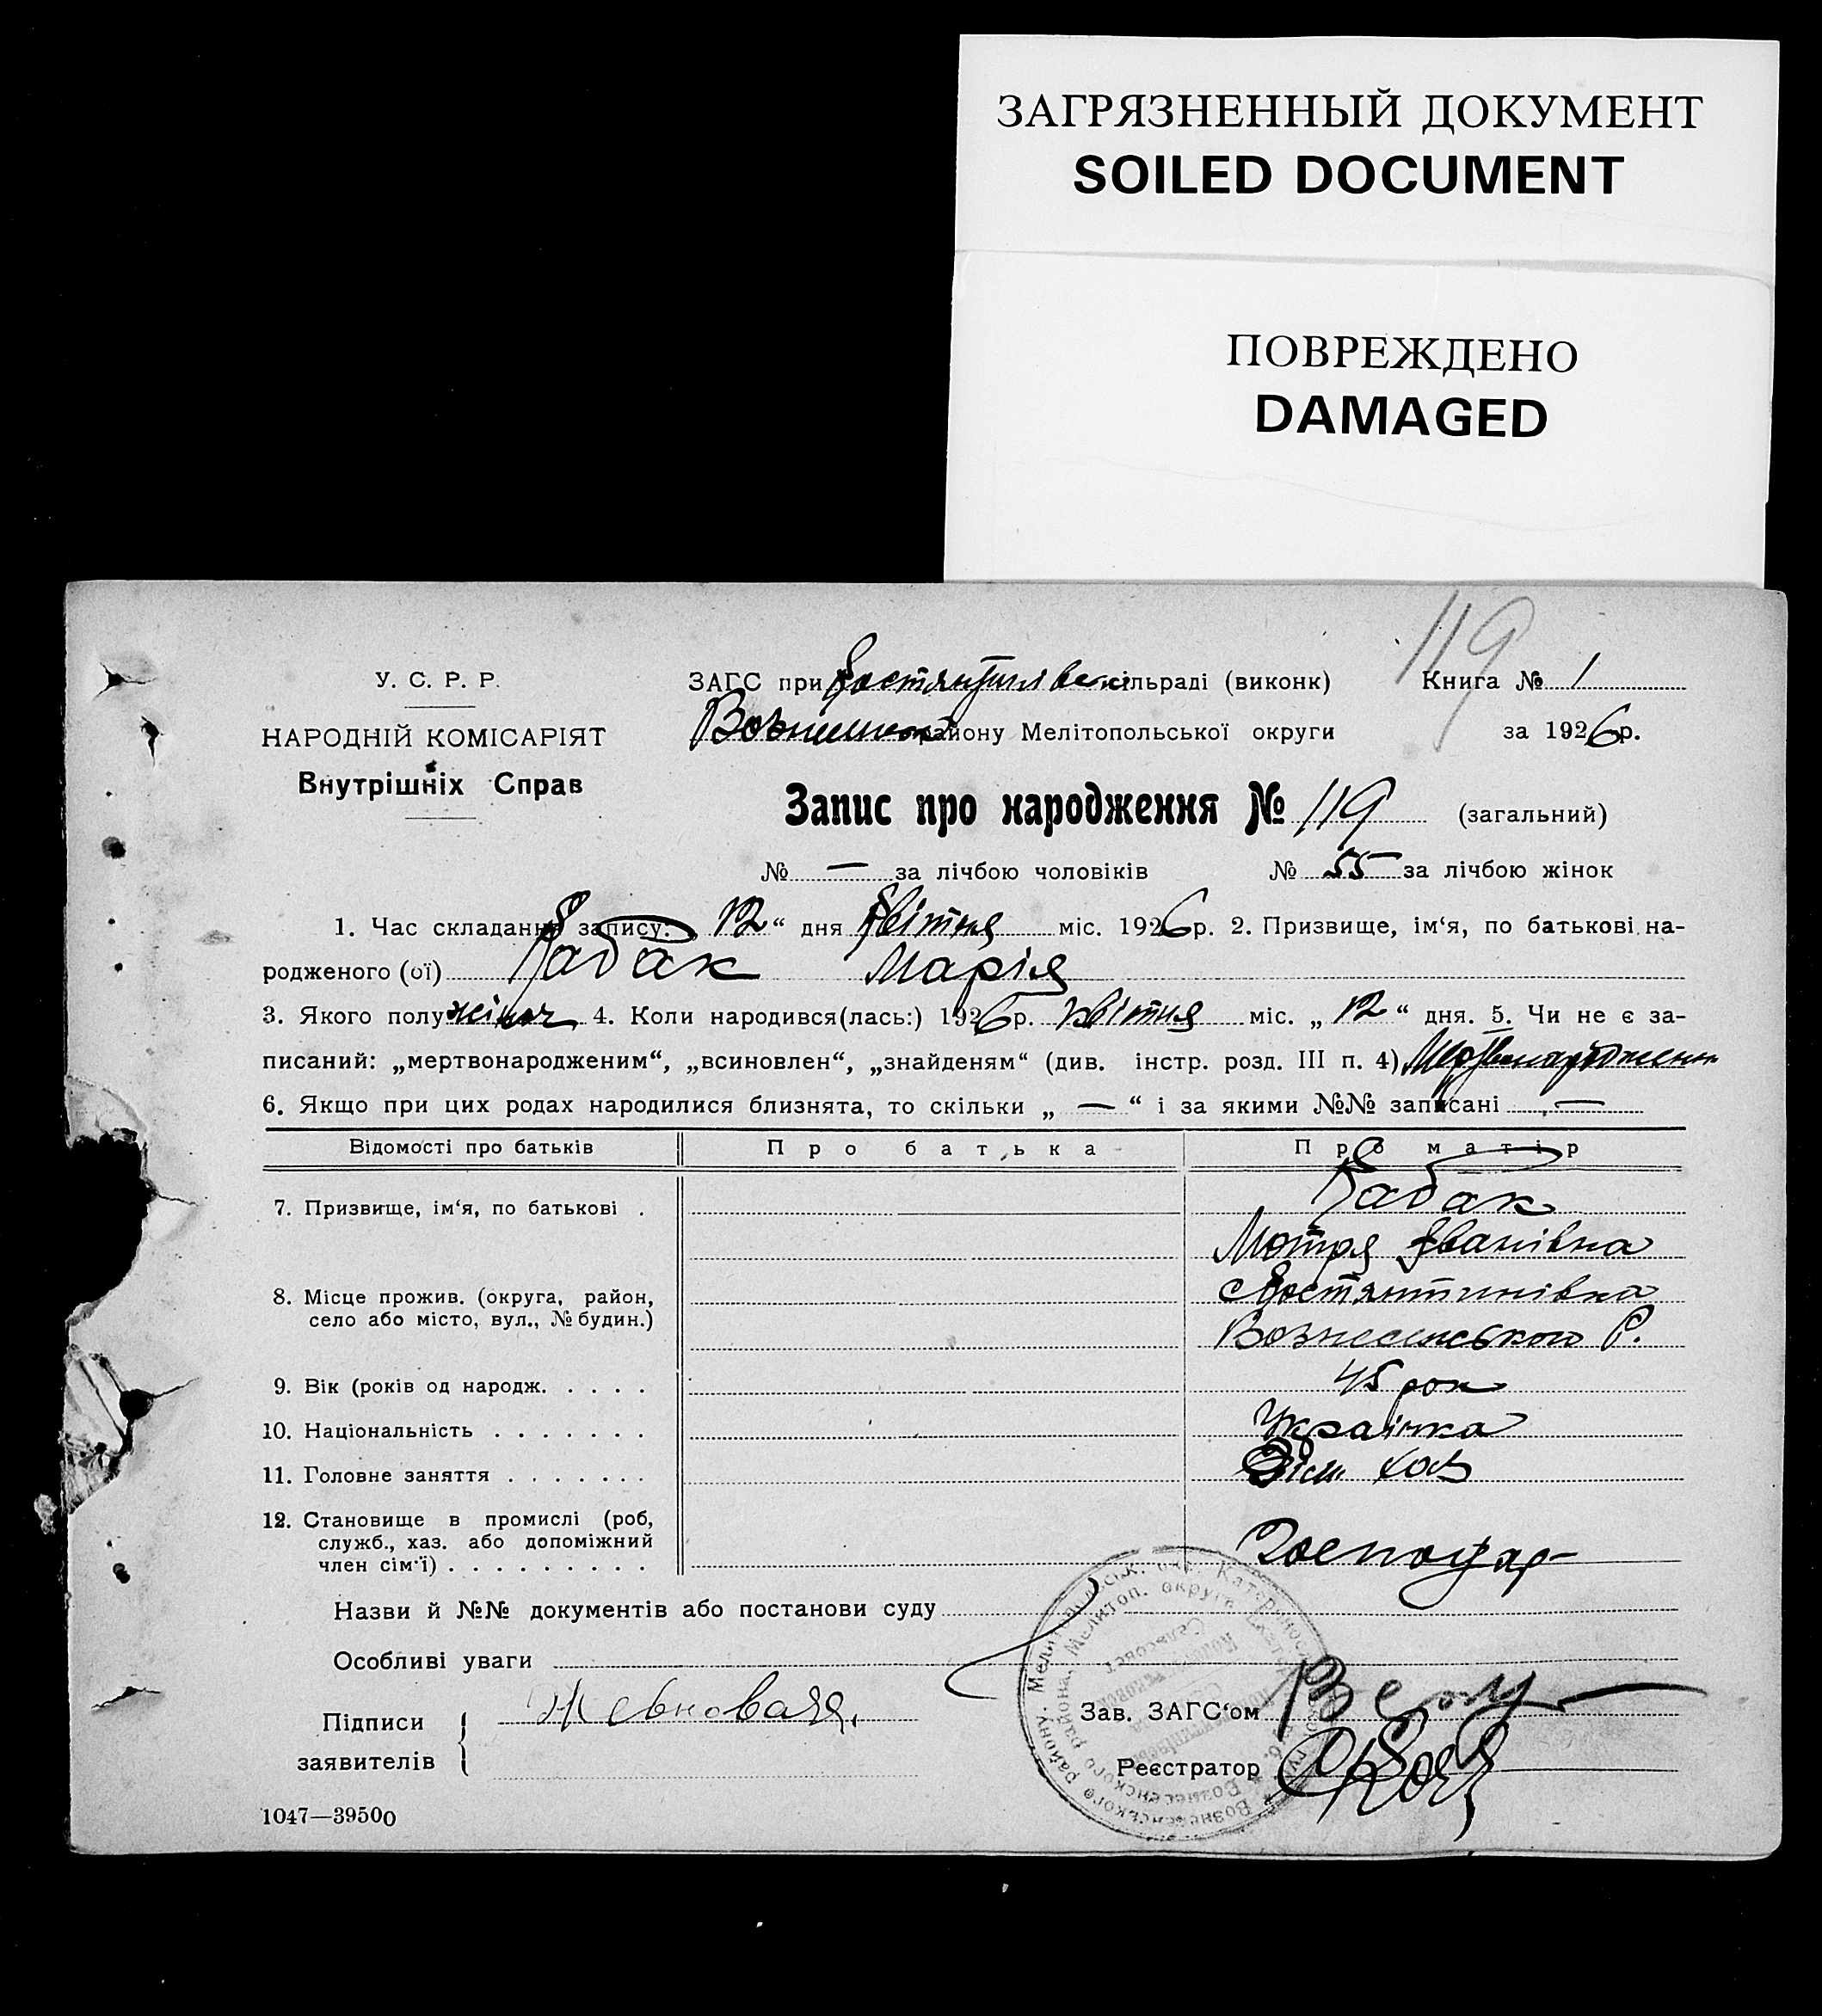 ЗАГРЯЗНЕННЫЙ ДОКУМЕНТ
SOILED DOCUMENT
ПОВРЕЖДЕНО
DAMAGED
119
У. С. Р. Р.
НАРОДНІЙ КОМІСАРІЯТ
Внутрішніх Справ
ЗАГС при Костянтинівській сільраді (виконк)
району Мелітопольської округи
Книга № 1
за 1926 р.
Запис про народження № 119 (загальний)
№ — за лічбою чоловіків № 55 за лічбою жінок
1. Час складання запису: „ 12 “ дня Квітня міс. 1926 р. 2. Призвище, ім‘я, по батькові на-
родженого (ої) Кабак Марія
3. Якого полу жіноч 4. Коли народився(лась:) 1926 р. Квітня міс. „ 12 “ дня. 5. Чи не є за-
писаний: „мертвонародженим“, „всиновлен“, „знайденям“ (див. інстр. розд. III п. 4)
6. Якщо при цих родах народилися близнята, то скільки „ — “ і за якими №№ записані —
Відомості про батьків Про батька Про матір
7. Призвище, ім‘я, по батькові . Кабак
Мотря Іванівна
8. Місце прожив. (округа, район, село або місто, вул., № будин.) с Костянтинівка
Вознесенського Р.
9. Вік (років од народж. . . . . 45 рок
10. Національність . . . . . . . Українка
11. Головне заняття . . . . . . .
12. Становище в промислі (роб,
служб., хаз. або допоміжний
член сім‘ї) . . . . . . . . . Господар
Назви й №№ документів або постанови суду
Особливі уваги
Підписи
заявителів
Зав. ЗАГС‘ом
Реєстратор
1047—39500